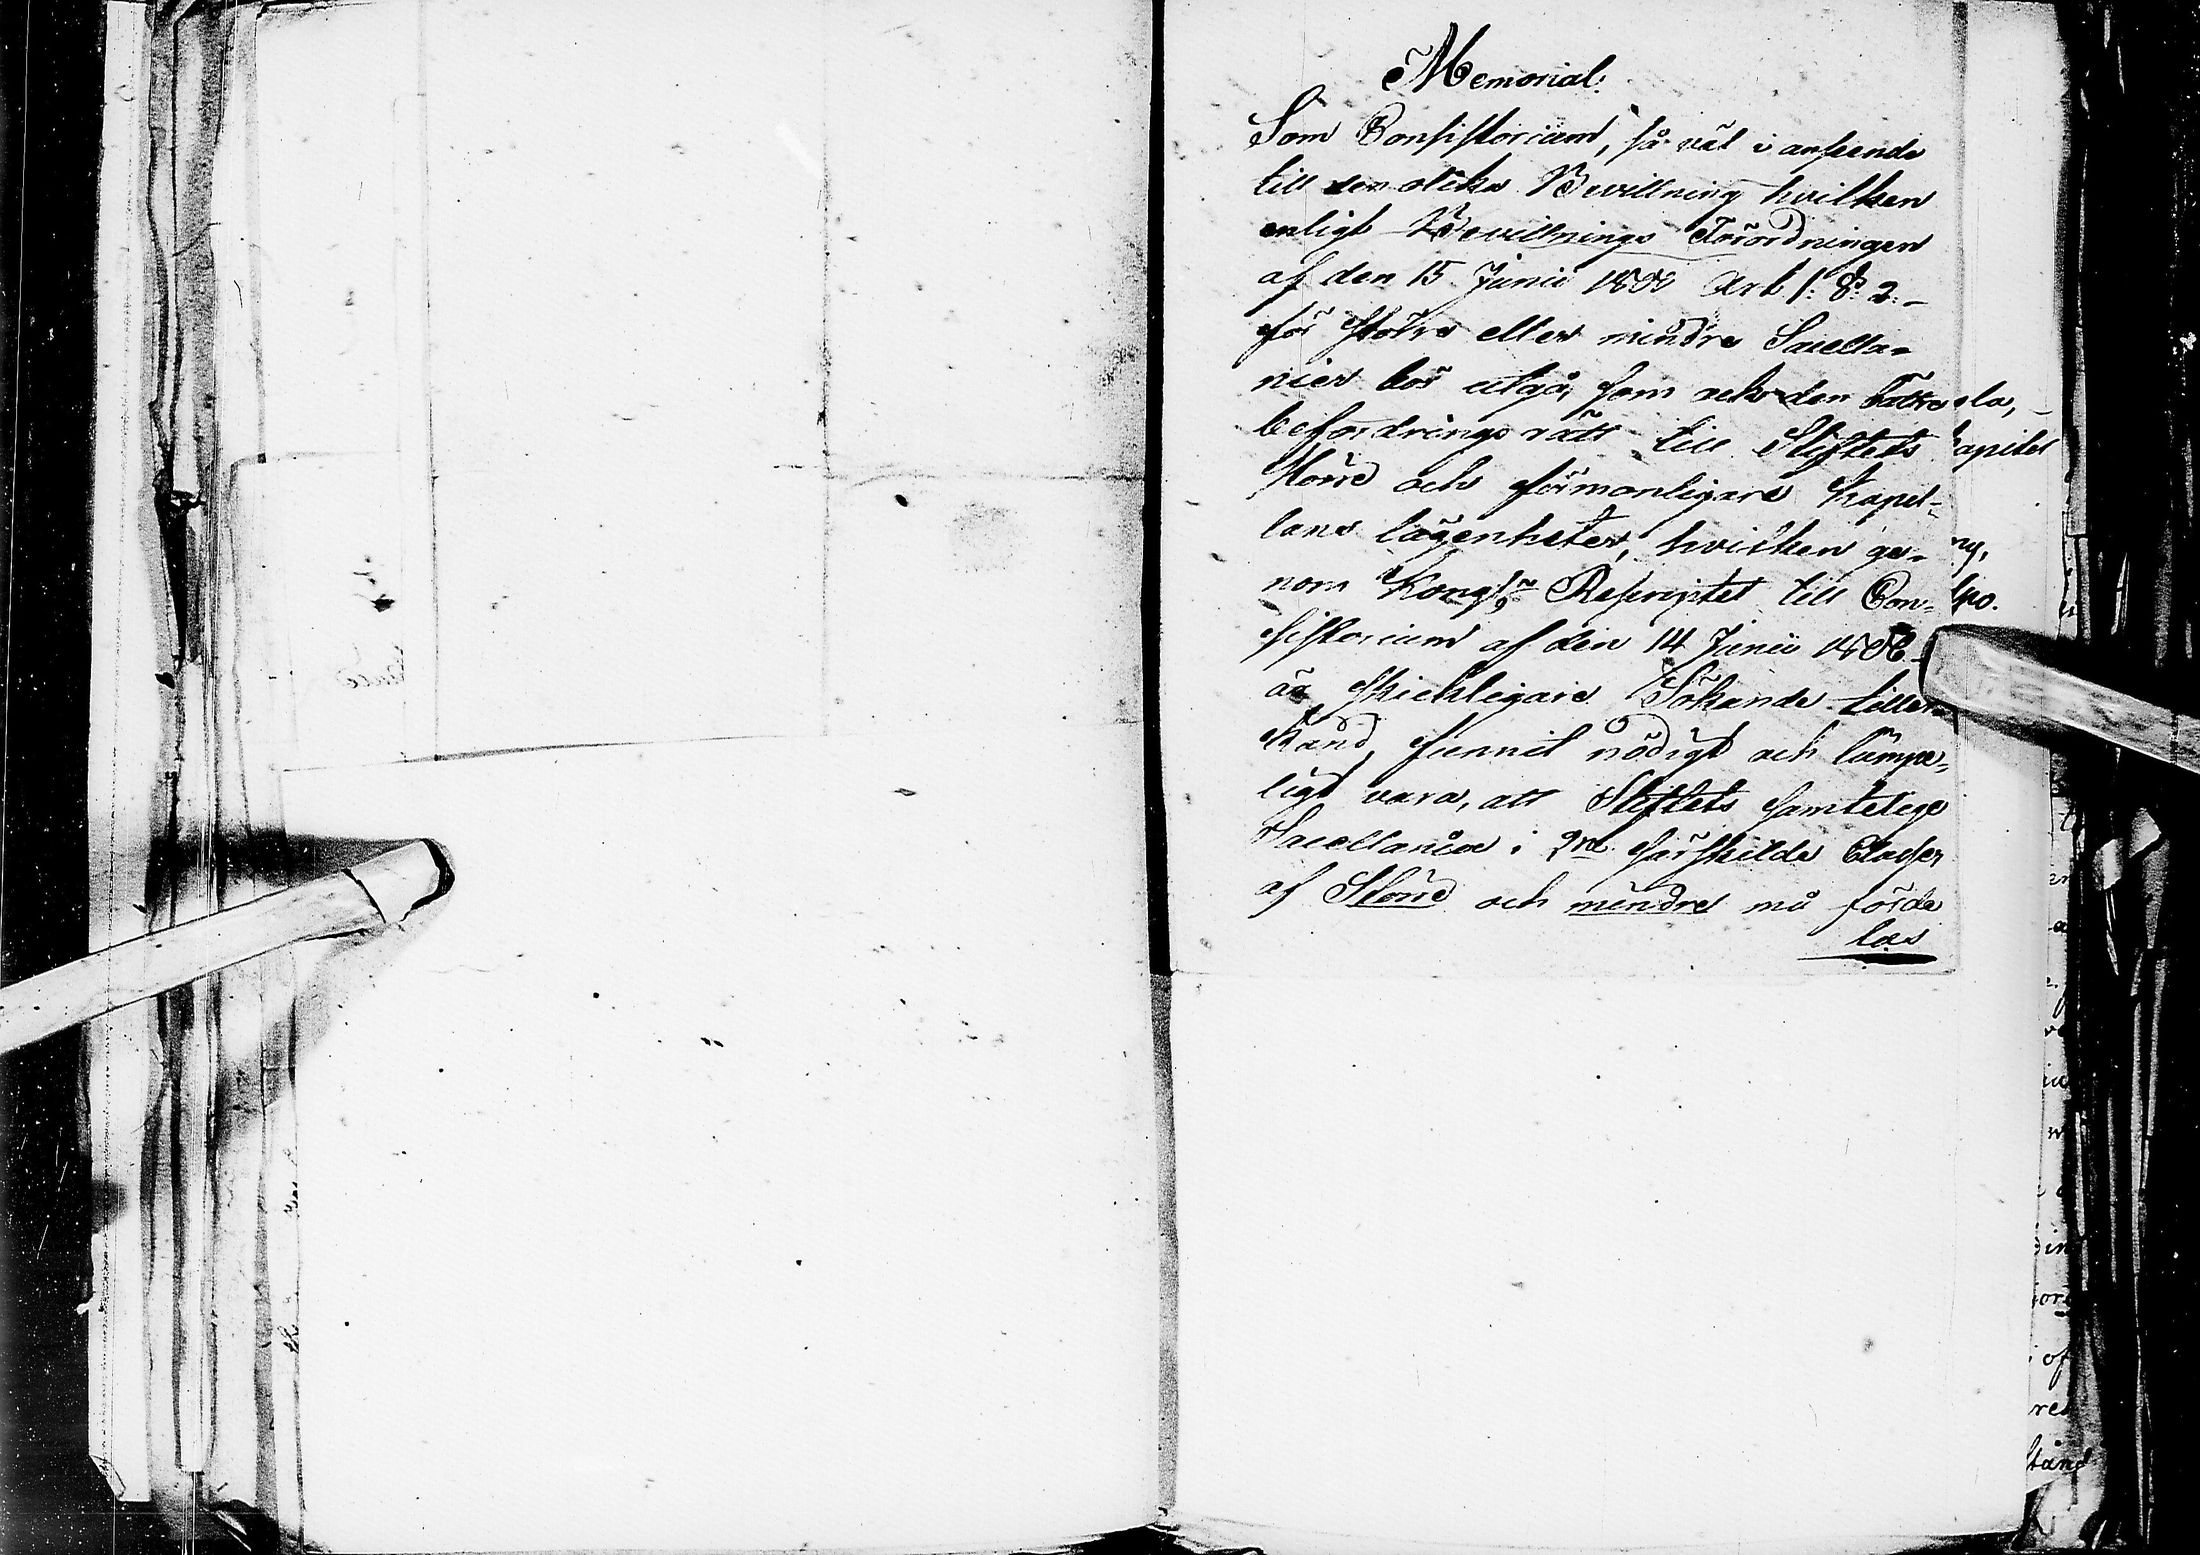 Memorial.
Som Consistorium, så väl i anseende
till den olika Bevillning hvilken
enligt Bevillnings Förordningen
af den 15 Junii 1800 Art 1: §: 2:
för större eller mindre Sacella-
nier bör utgå, som ock den bättre
befordrings rätt till Stiftets
större och förmonligare Kapel-
lans lägenheter, hvilken ge-
nom Kongl. Rescriptet till Con-
sistorium af den 14 Junii
är skickligare Sökande tiller-
känd, funnit nödigt och lämpe-
ligt vara, att Stiftets samtelige
Sacellanier i 2ne särskilde Classer
af Större och mindre må förde
las